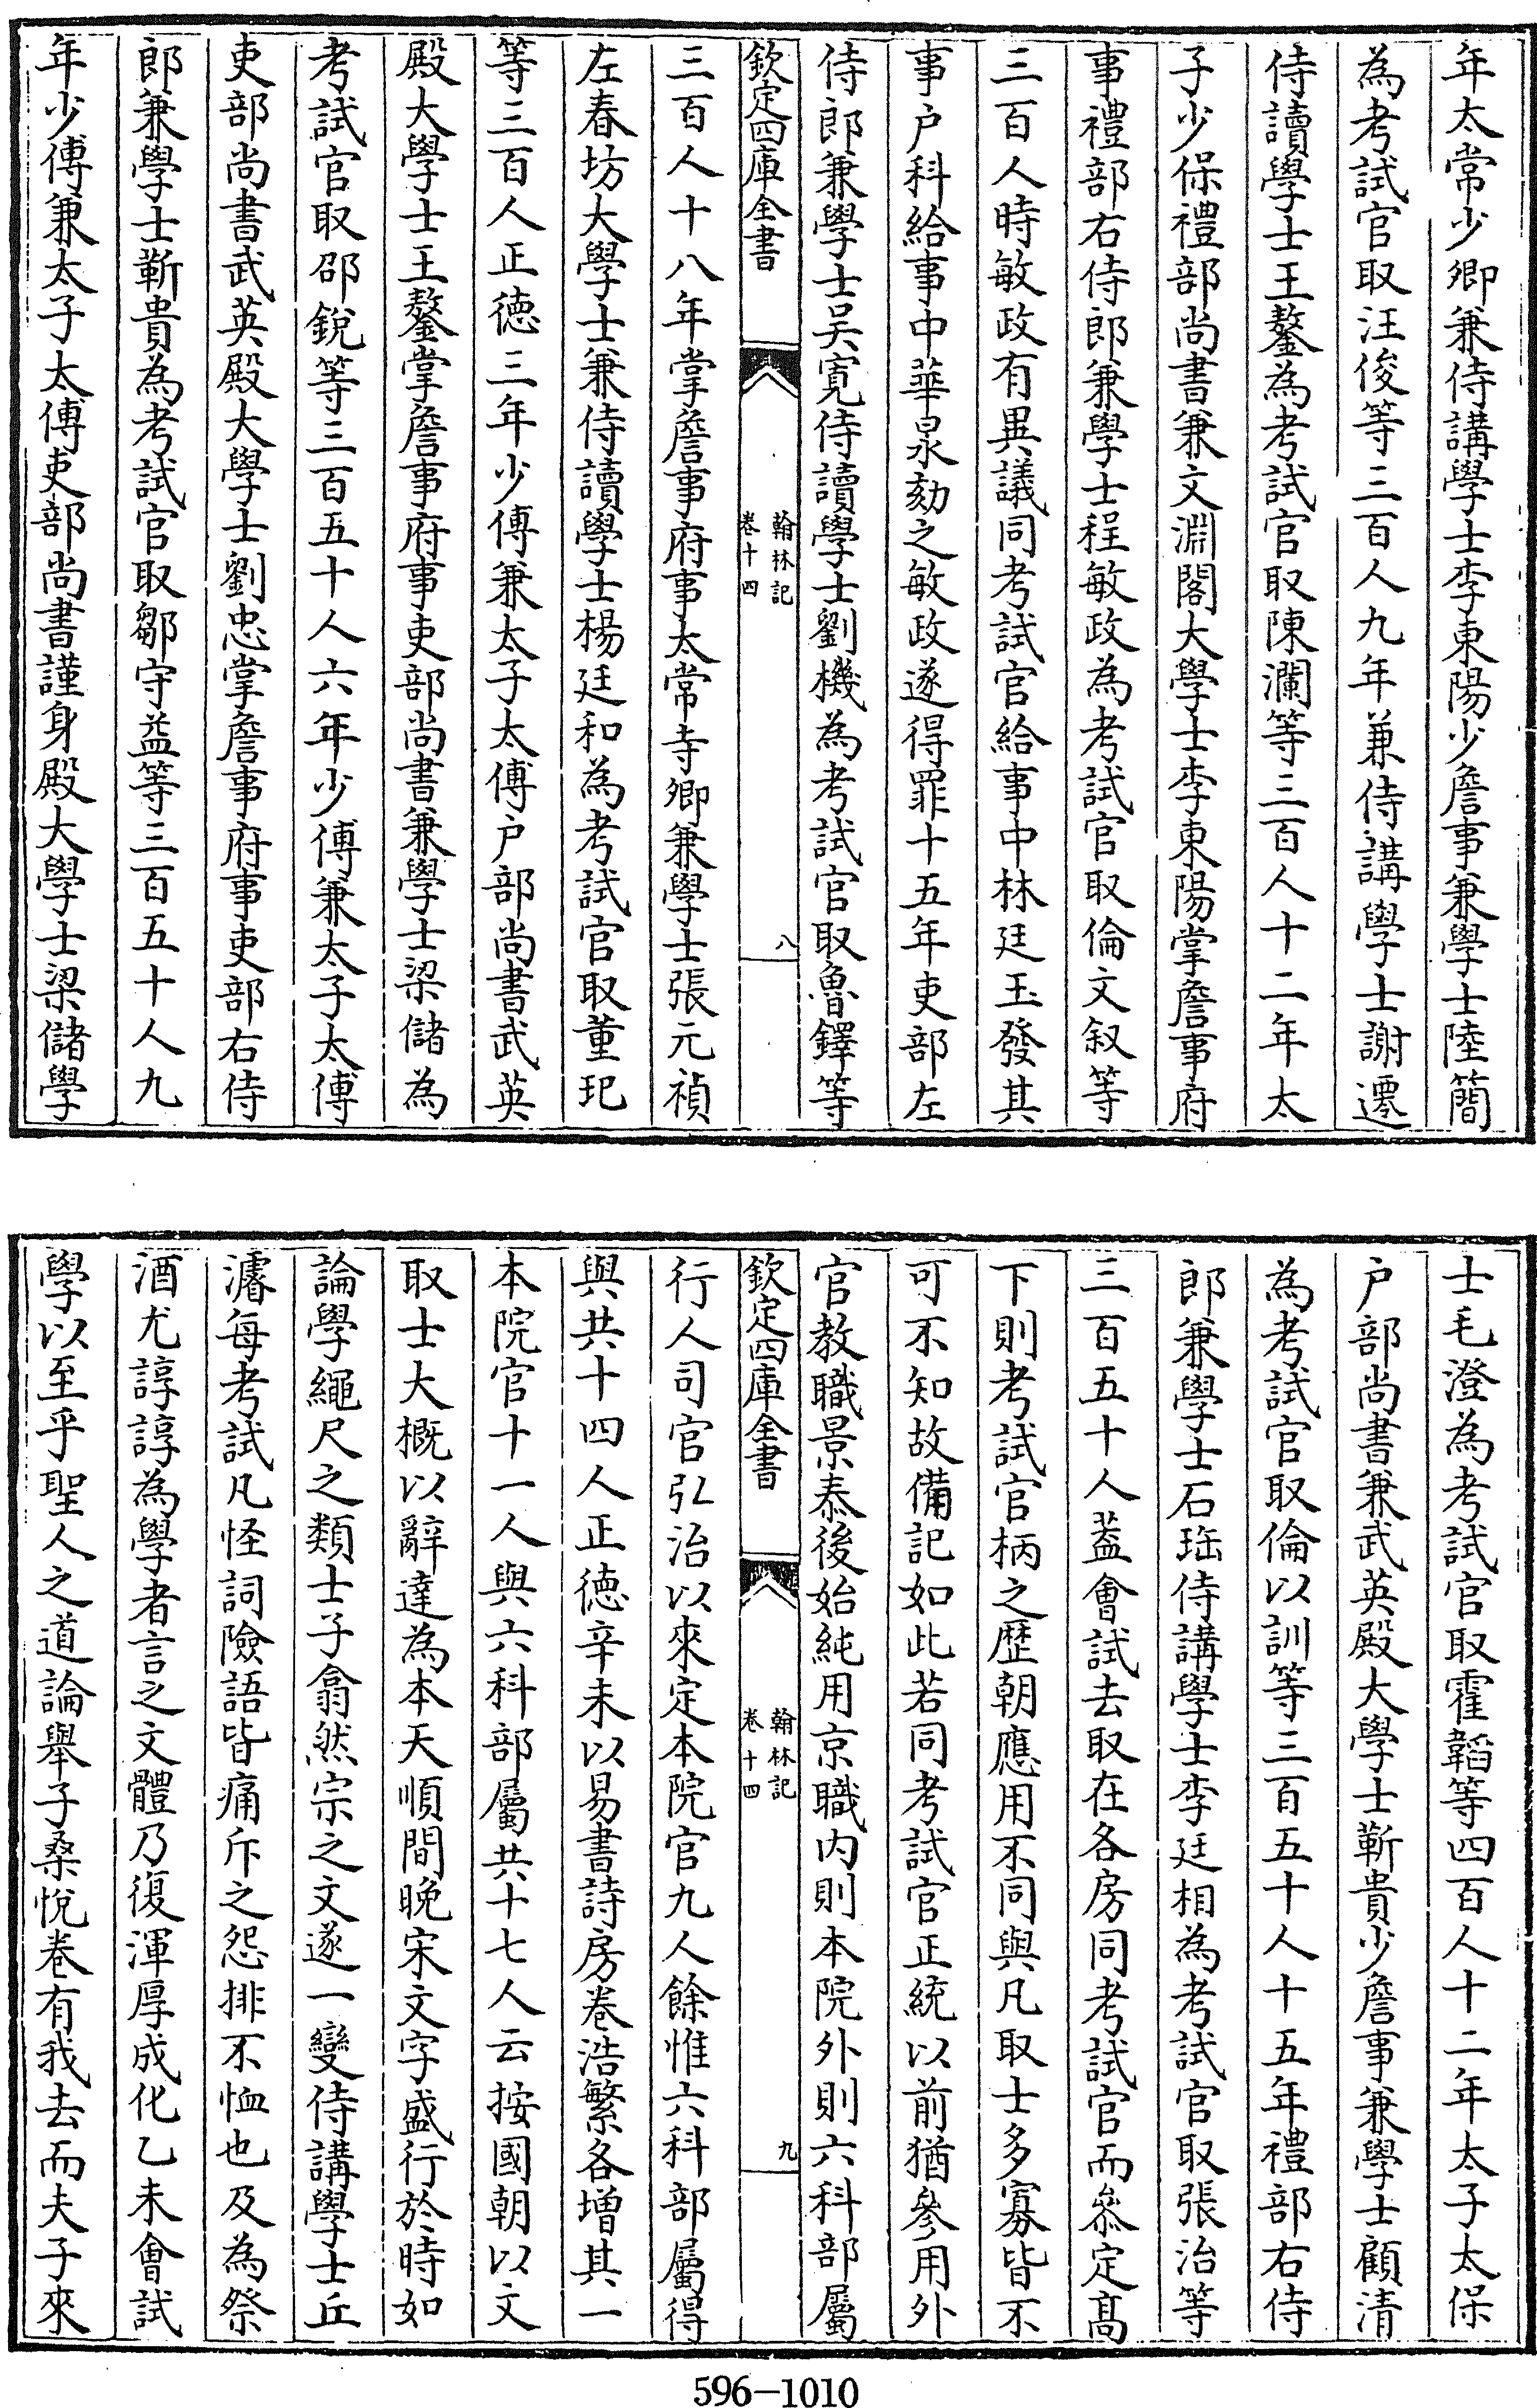 年太常少卿兼侍講學士李東陽少詹事兼學士陸簡
為考試官取汪俊等三百人九年兼侍講學士謝遷
侍讀學士王鏊為考試官取陳瀾等三百人十二年太
子少保禮部尚書兼文淵閣大學士李東陽掌詹事府
事禮部右侍郎兼學士程敏政為考試官取倫文叙等
三百人時敏政有異議同考試官給事中林廷玉發其
事户科給事中華泉劾之敏政遂得罪十五年吏部左
侍郎兼學士吴寛侍讀學士劉機為考試官取魯鐸等
欽定四庫全書
翰林記
卷十四
八
三百人十八年掌詹事府事太常寺卿兼學士張元禎
左春坊大學士兼侍讀學士楊廷和為考試官取董玘
等三百人正徳三年少傅兼太子太傅户部尚書武英
殿大學士王鏊掌詹事府事吏部尚書兼學士梁儲為
考試官取邵鋭等三百五十人六年少傅兼太子太傅
吏部尚書武英殿大學士劉忠掌詹事府事吏部右侍
郎兼學士靳貴為考試官取鄒守益等三百五十人九
年少傅兼太子太傅吏部尚書謹身殿大學士梁儲學
士毛澄為考試官取霍韜等四百人十二年太子太保
户部尚書兼武英殿大學士靳貴少詹事兼學士顧清
為考試官取倫以訓等三百五十人十五年禮部右侍
郎兼學士石珤侍講學士李廷相為考試官取張治等
三百五十人葢會試去取在各房同考試官而叅定髙
下則考試官柄之歴朝應用不同與凡取士多寡皆不
可不知故備記如此若同考試官正統以前猶參用外
官教職景泰後始純用京職内則本院外則六科部屬
欽定四庫全書
翰林記
卷十四
九
行人司官弘治以來定本院官九人餘惟六科部屬得
與共十四人正徳辛未以易書詩房卷浩繁各增其一
本院官十一人與六科部屬共十七人云按國朝以文
取士大概以辭達為本天順間晚宋文字盛行於時如
論學繩尺之類士子翕然宗之文遂一變侍講學士丘
濬每考試凡怪詞險語皆痛斥之怨排不恤也及為祭
酒尤諄諄為學者言之文體乃復渾厚成化乙未會試
學以至乎聖人之道論舉子桑悦卷有我去而夫子來
596-1010